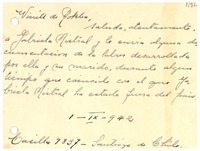 Winétt de Rokha,
saluda, atentamente,
a Gabriela Mistral, y le envía alguna do-
cumentación de la labor desarrollada
por ella y su marido, durante algún
tiempo que coincide con el que Ga-
briela Mistral ha estado fuera del país
1-IX-942
Casilla 7857- Santiago de Chile.